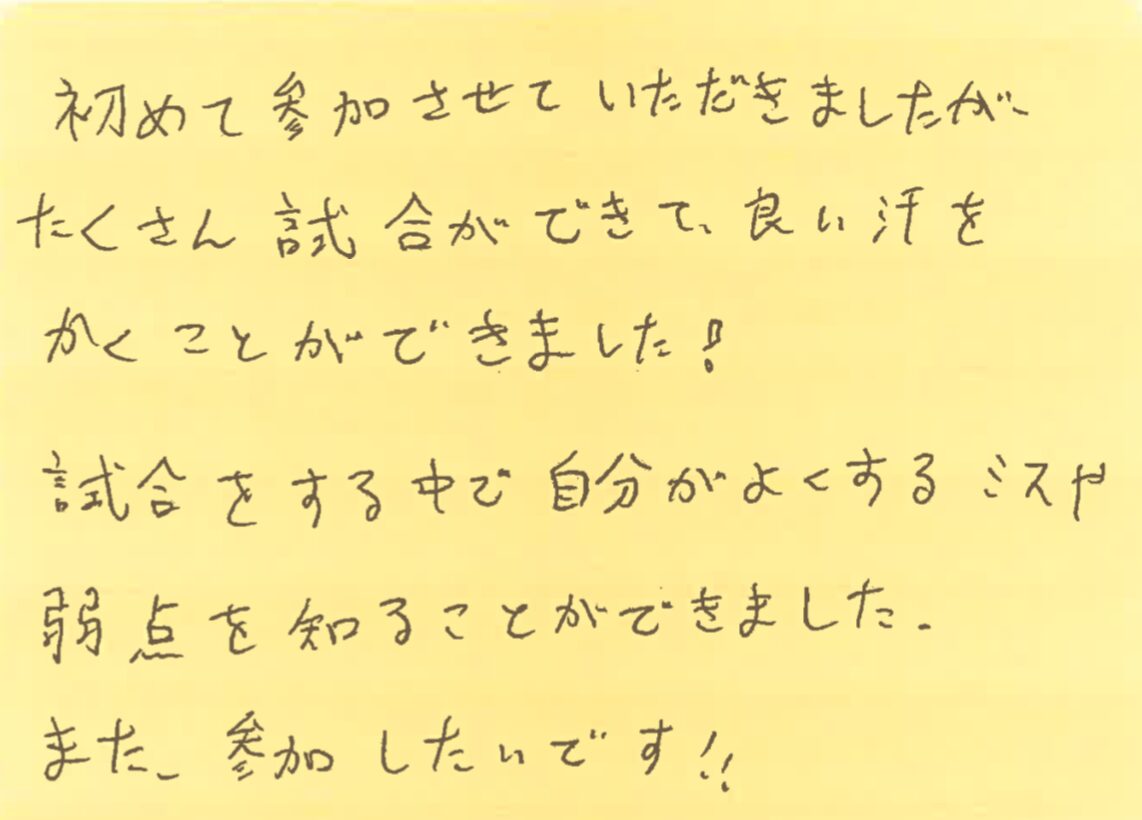 初めて参加させていただきましたが、
たくさん試合ができて、良い汗を
かくことができました!
試合をする中で自分がよくするミスや
弱点を知ることができました。
また、参加したいです!!